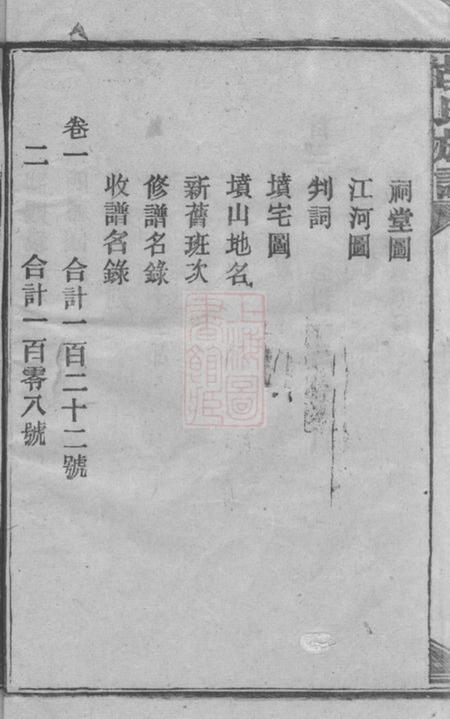 祠堂圖
江河圖
判詞
墳宅圖
墳山地名
新舊班次
修譜名錄
收譜名錄
卷一　合計一百二十二號
二　合計一百零八號
上海圖書館藏